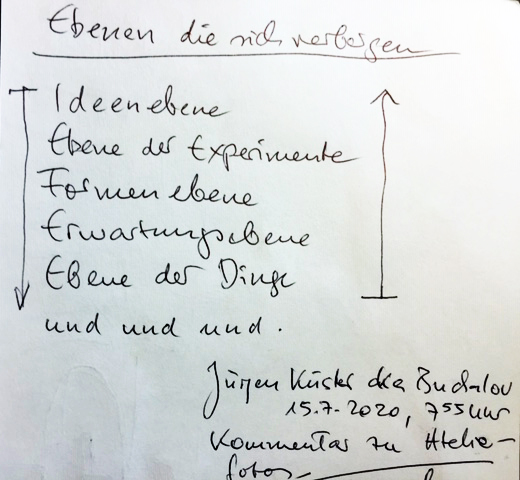 Ebenen die sich verbergen
Ideenebene
Ebene der Experimente
Formenebene
Erwartungsebene
Ebene der Dinge
und und und.
Jürgen Küster aka Buchalov
15.7.2020, 7⁵⁵ Uhr
Kommentar zu Atelier-
fotos